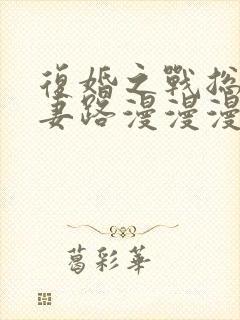 復婚之戰總
妻路漫漫漫
葛彩華